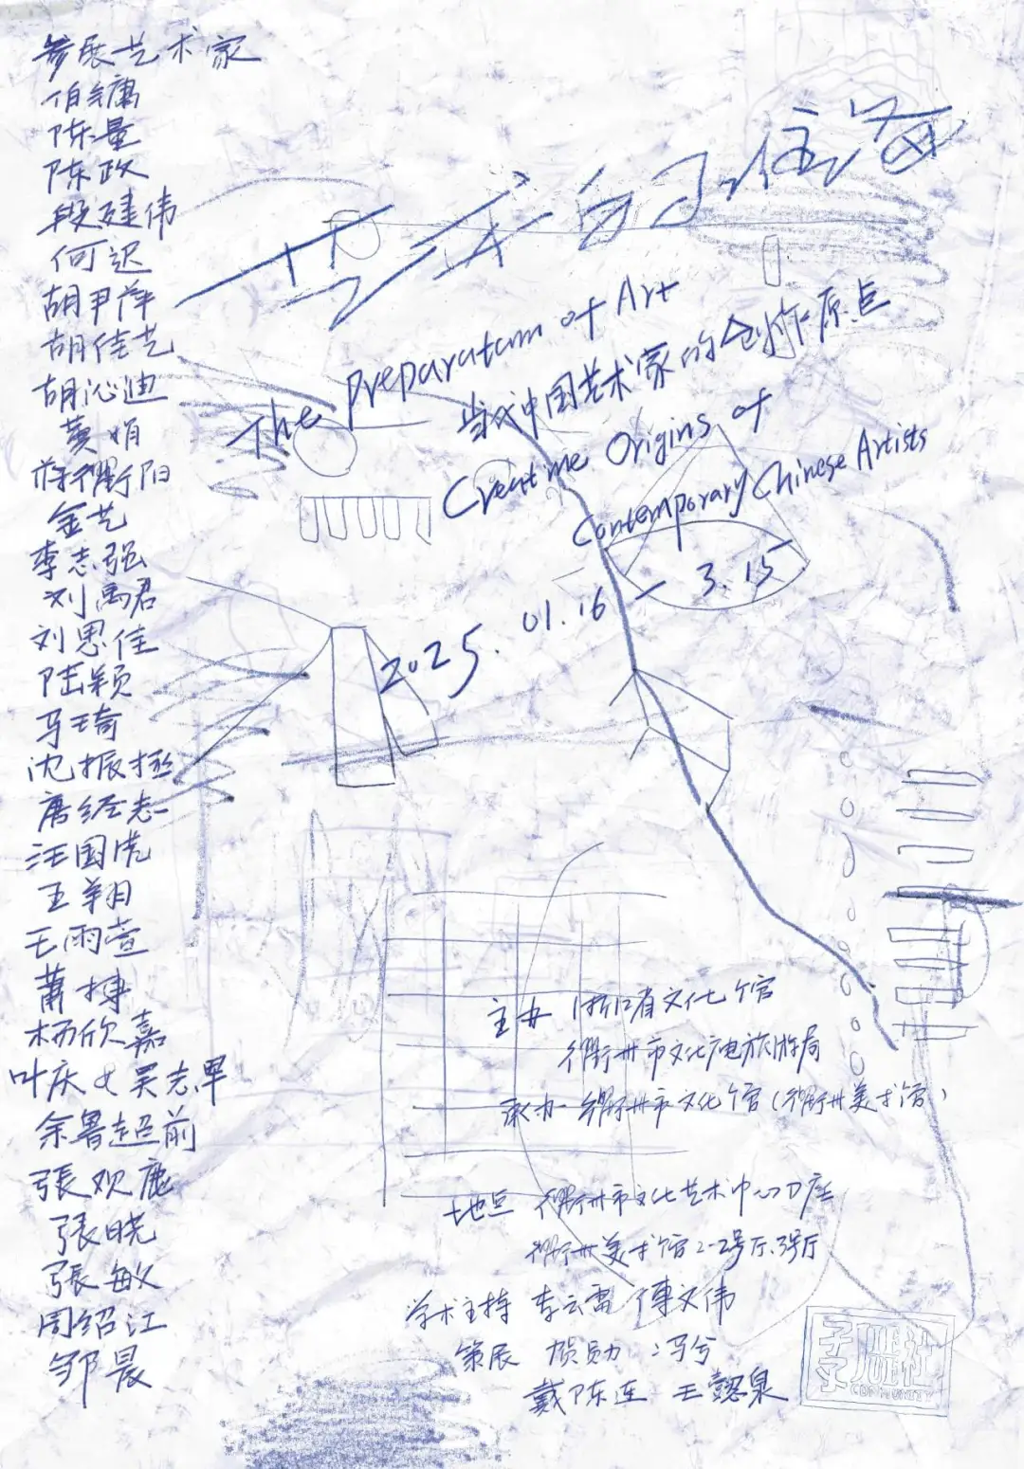 参展艺术家
陈量
陈政
段建伟
何迟
胡尹萍
胡佳艺
胡沁迪
黄娟
蒋衢阳
金艺
李志强
刘禹君
刘思佳
陆颖
马琦
沈振极
唐经志
汪国虎
王翔
王雨萱
萧搏
杨欣嘉
叶庆 & 吴志军
余鲁超前
張观鹿
張晓
張敏
周绍江
邹晨
艺术的准备
The Preparation of Art
当代中国艺术家的创作原点
Creative Origins of
Contemporary Chinese Artists
2025. 01.16 – 3.15
主办 浙江省文化馆
衢州市文化广电旅游局
承办 衢州市文化馆(衢州美术馆)
地点 衢州市文化艺术中心D座
衢州美术馆2-2号厅、3号厅
学术主持 李云雷 傅文伟
策展 贺勋 冯兮
戴陈连 王懿泉